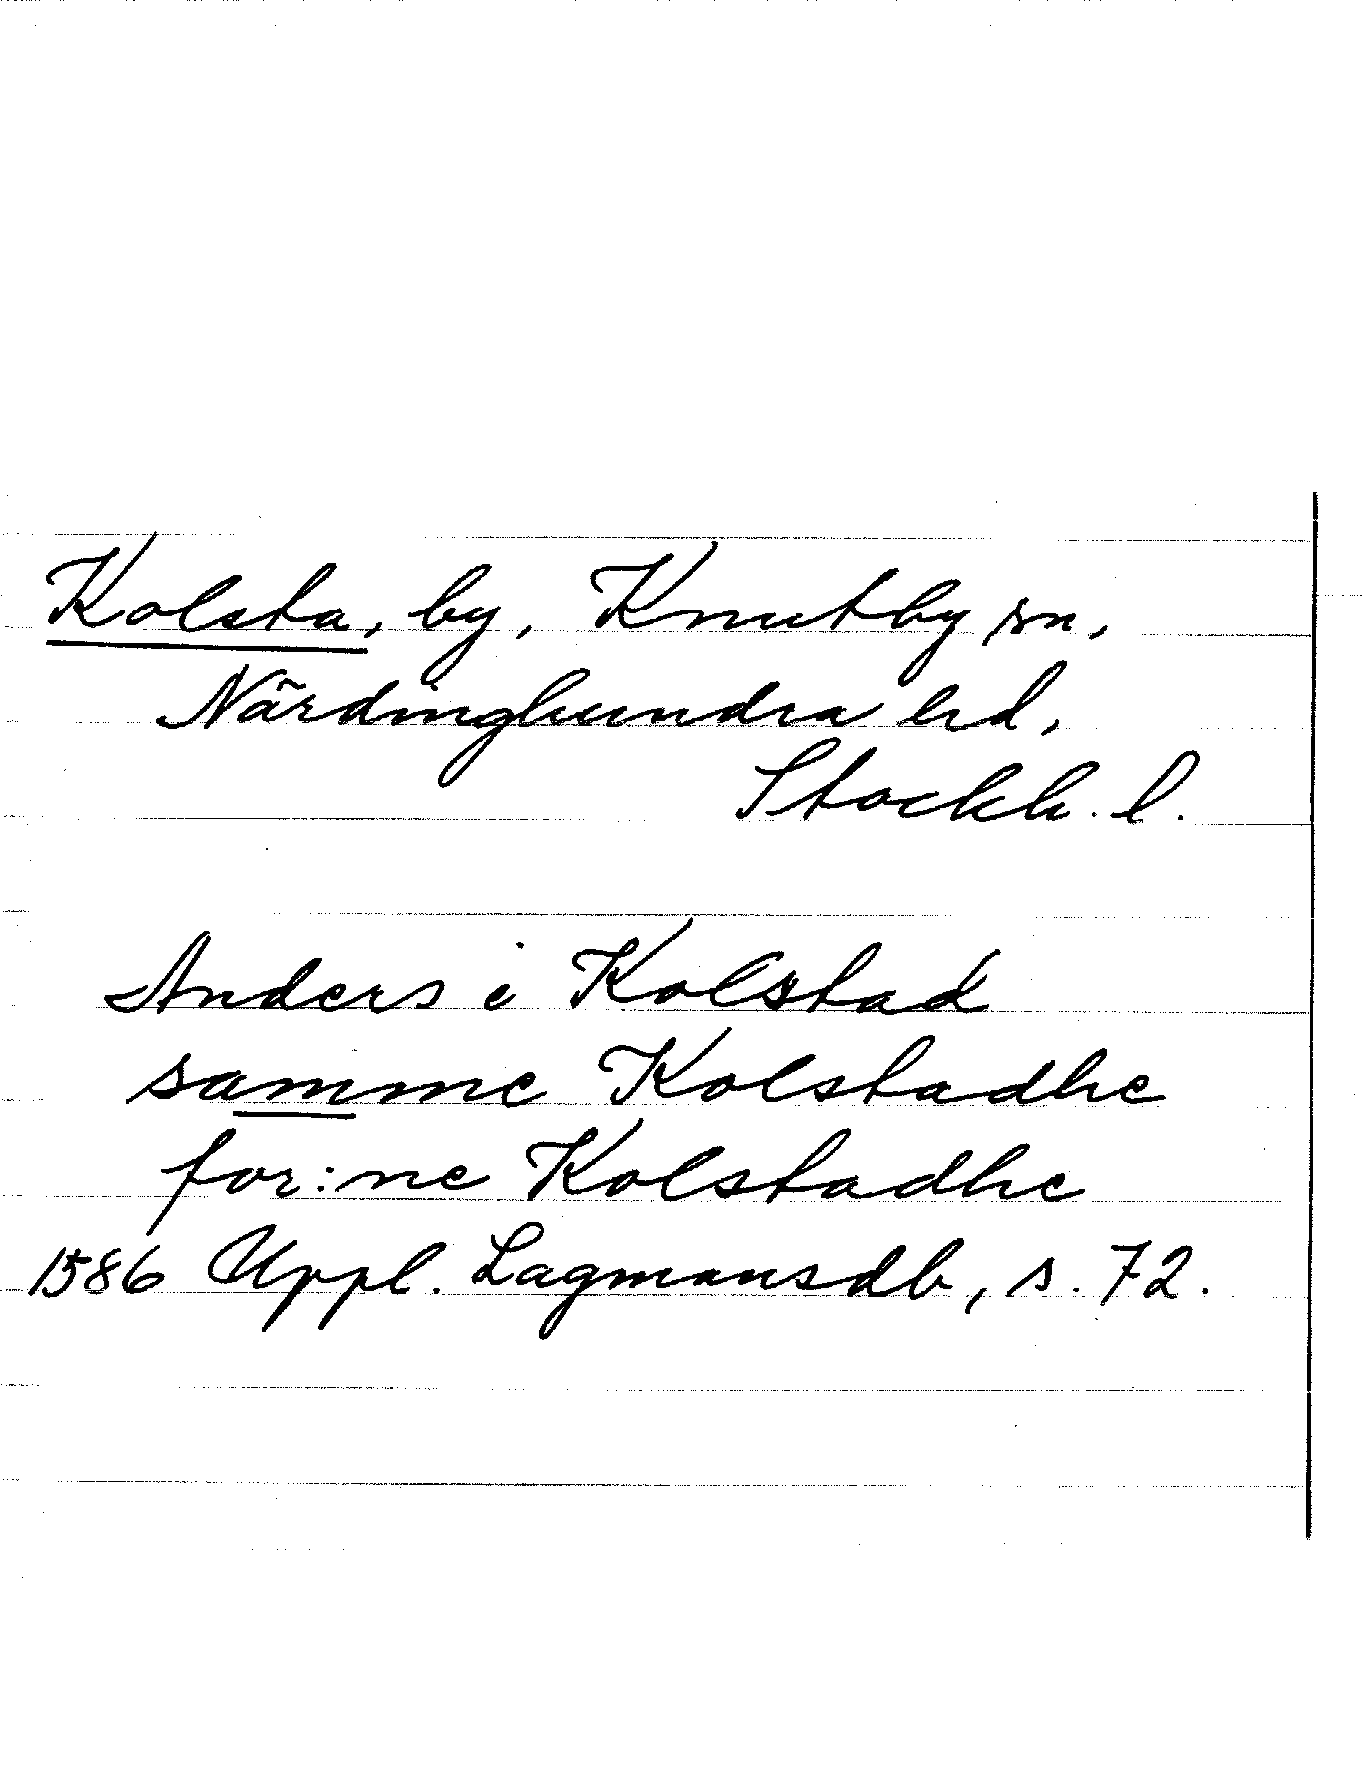 Kolsta, by, Knutby sn,
Närdinghundra hd,
Stockh. l.
Anders i Kolstad
samme Kolstadhe
for:ne Kolstadhe
1586 Uppl. Lagmansdb, s. 72.